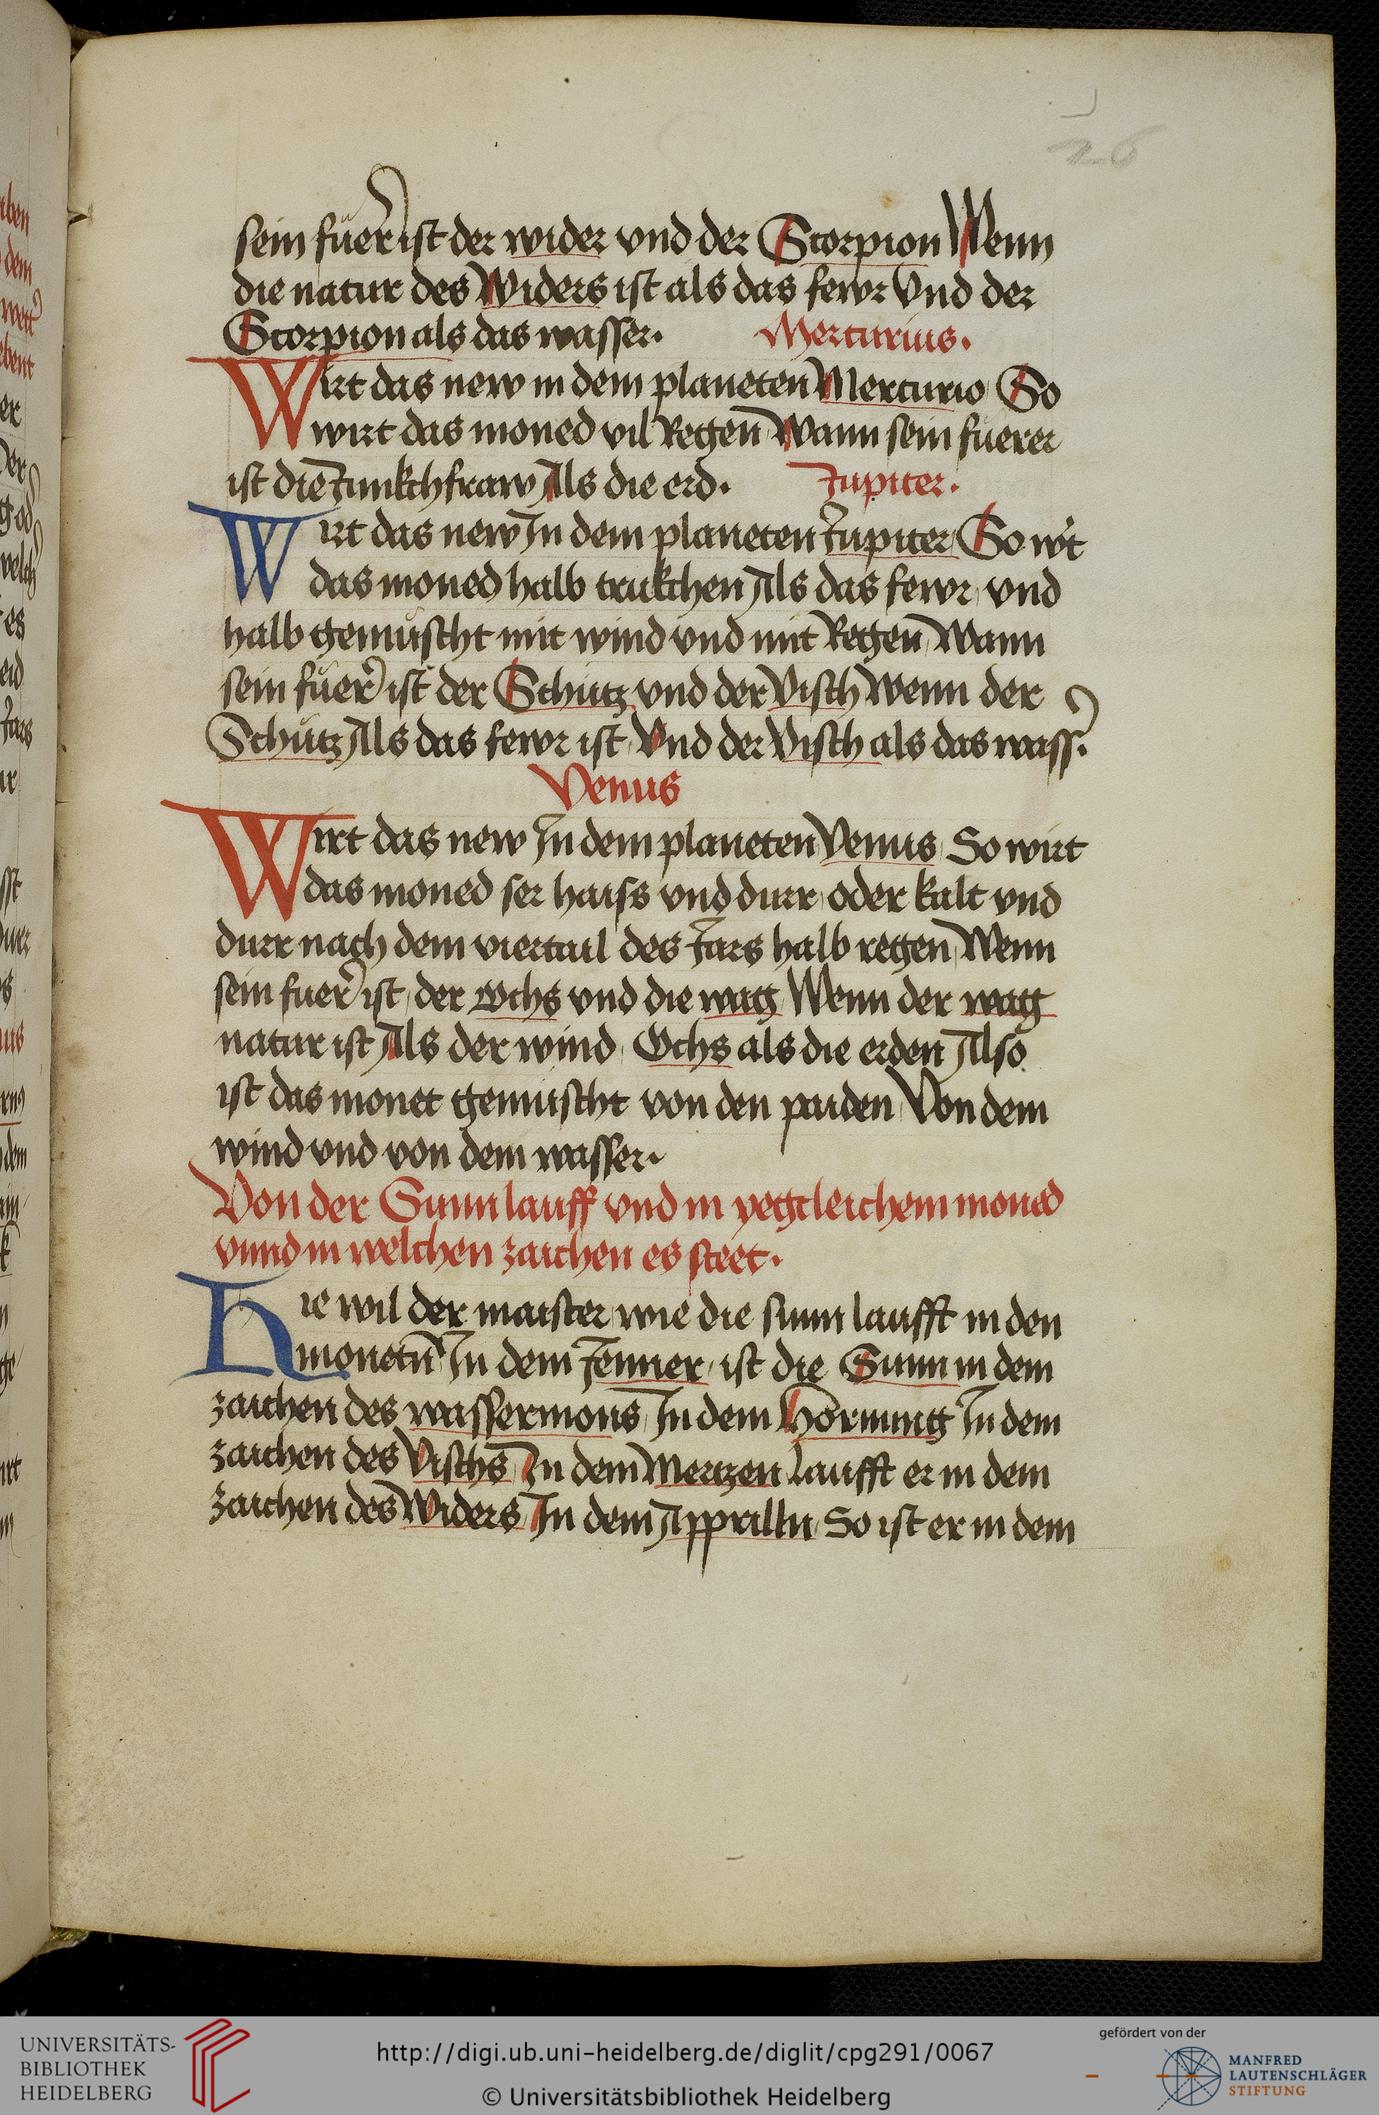 26
sein füer ist der wider vnd der Scorpion Wenn
die natur des Widers ist als das fewr Vnd der
Scorpion als das wasser. Mercurius.
Wirt das new in dem planeten Mercurio So
wirt das moned vil Regen Wann sein fuerer
ist die Junkchfraw Als die erd. Jupiter.
Wirt das new In dem planeten Jupiter So wirt
das moned halb trukchen Als das fewr vnd
halb gemuscht mit wind vnd mit Regen Wann
sein füer ist der Schütz vnd der Visch Wenn der
Schütz Als das fewr ist Vnd der Visch als das wasser.
Venus
Wirt das new In dem planeten Venus So wirt
das moned ser haiss vnd durr oder kalt vnd
durr nach dem viertail des Jars halb regen Wenn
sein fuer ist der Ochs vnd die wag Wenn der wag
natur ist Als der wind Ochs als die erden Also
ist das monet gemuscht von den paiden Von dem
wind vnd von dem wasser.
Von der Sunn lauff vnd in yegcleichem moned
vnnd in welchen zaichen es steet.
Hie wil der maister wie die sunn laufft in den
monetn In dem Jenner ist die Sunn in dem
zaichen des wassermons In dem Hornung In dem
zaichen des Vischs In dem Mertzen Laufft er in dem
zaichen des Widers In dem Apprilln So ist er in dem
UNIVERSITÄTS-
BIBLIOTHEK
HEIDELBERG
http://digi.ub.uni-heidelberg.de/diglit/cpg291/0067
© Universitätsbibliothek Heidelberg
gefördert von der
MANFRED
LAUTENSCHLÄGER
STIFTUNG